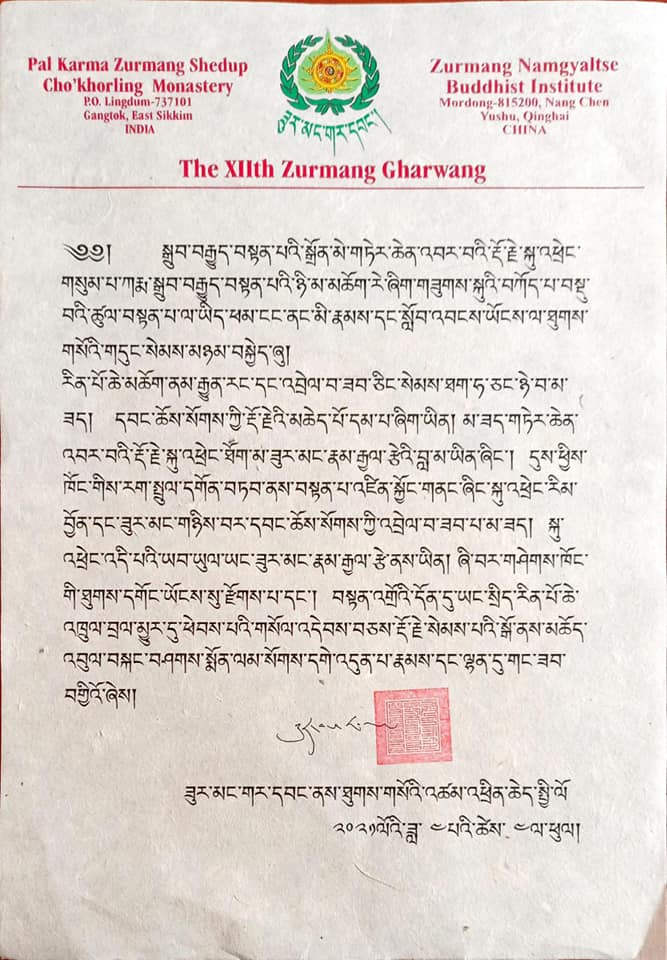 Pal Karma Zurmang Shedup
Cho'khorling Monastery
P.O. Lingdum-737101
Gangtok, East Sikkim
INDIA
ཟུར་མང་གར་དབང་།
Zurmang Namgyaltse
Buddhist Institute
Mordong-815200, Nang Chen
Yushu, Qinghai
CHINA
The XIIth Zurmang Gharwang
༄༅། སྒྲུབ་བརྒྱུད་བསྟན་པའི་སྒྲོན་མེ་གཏེར་ཆེན་འབར་བའི་རྡོ་རྗེ་སྐུ་འཕྲེང་
གསུམ་པ་ཀརྨ་སྒྲུབ་བརྒྱུད་བསྟན་པའི་ཉི་མ་མཆོག་རེ་ཞིག་གཟུགས་སྐུའི་བཀོད་པ་བསྡུ་
བའི་ཚུལ་བསྟན་པ་ལ་ཡིད་ཕམ་ངང་ནང་མི་རྣམས་དང་སློབ་འབངས་ཡོངས་ལ་ཐུགས་
གསོའི་གདུང་སེམས་མཉམ་བསྐྱེད་ཞུ།
རིན་པོ་ཆེ་མཆོག་ནམ་རྒྱུན་རང་དང་འབྲེལ་བ་ཟབ་ཅིང་སེམས་ཐག་ཧ་ཅང་ཉེ་བ་མ་
ཟད། དབང་ཆོས་སོགས་ཀྱི་རྡོ་རྗེའི་མཆེད་པོ་དམ་པ་ཞིག་ཡིན། མ་ཟད་གཏེར་ཆེན་
འབར་བའི་རྡོ་རྗེ་སྐུ་འཕྲེང་ཐོག་མ་ཟུར་མང་རྣམ་རྒྱལ་རྩེའི་བླ་མ་ཡིན་ཞིང་། དུས་ཕྱིས་
ཁོང་གིས་རག་སྤྲུལ་དགོན་བཏབ་ནས་བསྟན་པ་འཛིན་སྐྱོང་གནང་ཞིང་སྐུ་འཕྲེང་རིམ་
བྱོན་དང་ཟུར་མང་གཉིས་བར་དབང་ཆོས་སོགས་ཀྱི་འབྲེལ་བ་ཟབ་པ་མ་ཟད། སྐུ་
འཕྲེང་འདི་པའི་ཡབ་ཡུལ་ཡང་ཟུར་མང་རྣམ་རྒྱལ་རྩེ་ནས་ཡིན། ཞི་བར་གཤེགས་ཁོང་
གི་ཐུགས་དགོང་ཡོངས་སུ་རྫོགས་པ་དང་། བསྟན་འགྲོའི་དོན་དུ་ཡང་སྲིད་རིན་པོ་ཆེ་
འཁྲུལ་བྲལ་མྱུར་དུ་ཕེབས་པའི་གསོལ་འདེབས་བཅས་རྡོ་རྗེ་སེམས་པའི་སྒོ་ནས་མཆོད་
འབུལ་བསྐང་བཤགས་སྨོན་ལམ་སོགས་དགེ་འདུན་པ་རྣམས་དང་ལྷན་དུ་གང་ཟབ་
བགྱིའོ་ཞེས།
ཟུར་མང་གར་དབང་ནས་ཐུགས་གསོའི་འཚམ་འཕྲིན་ཆེད་སྤྱི་ལོ་
༢༠༢༡ལོའི་ཟླ་ ༤པའི་ཚེས་ ༤ལ་ཕུལ།